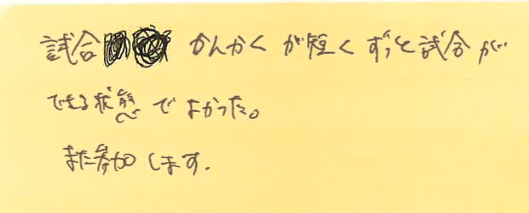 試合 かんかくが短くずっと試合が
できる状態でよかった。
また参加します.